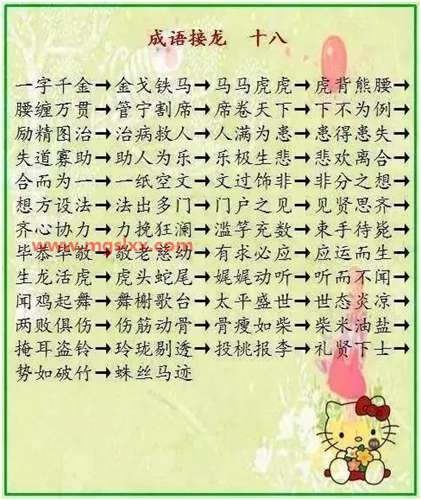 成语接龙 十八
一字千金→金戈铁马→马马虎虎→虎背熊腰→
腰缠万贯→管宁割席→席卷天下→下不为例→
励精图治→治病救人→人满为患→患得患失→
失道寡助→助人为乐→乐极生悲→悲欢离合→
合而为一→一纸空文→文过饰非→非分之想→
想方设法→法出多门→门户之见→见贤思齐→
齐心协力→力挽狂澜→滥竽充数→束手待毙→
毕恭毕敬→敬老慈幼→有求必应→应运而生→
www.mgslxx.com
生龙活虎→虎头蛇尾→娓娓动听→听而不闻→
闻鸡起舞→舞榭歌台→太平盛世→世态炎凉→
两败俱伤→伤筋动骨→骨瘦如柴→柴米油盐→
掩耳盗铃→玲珑剔透→投桃报李→礼贤下士→
势如破竹→蛛丝马迹